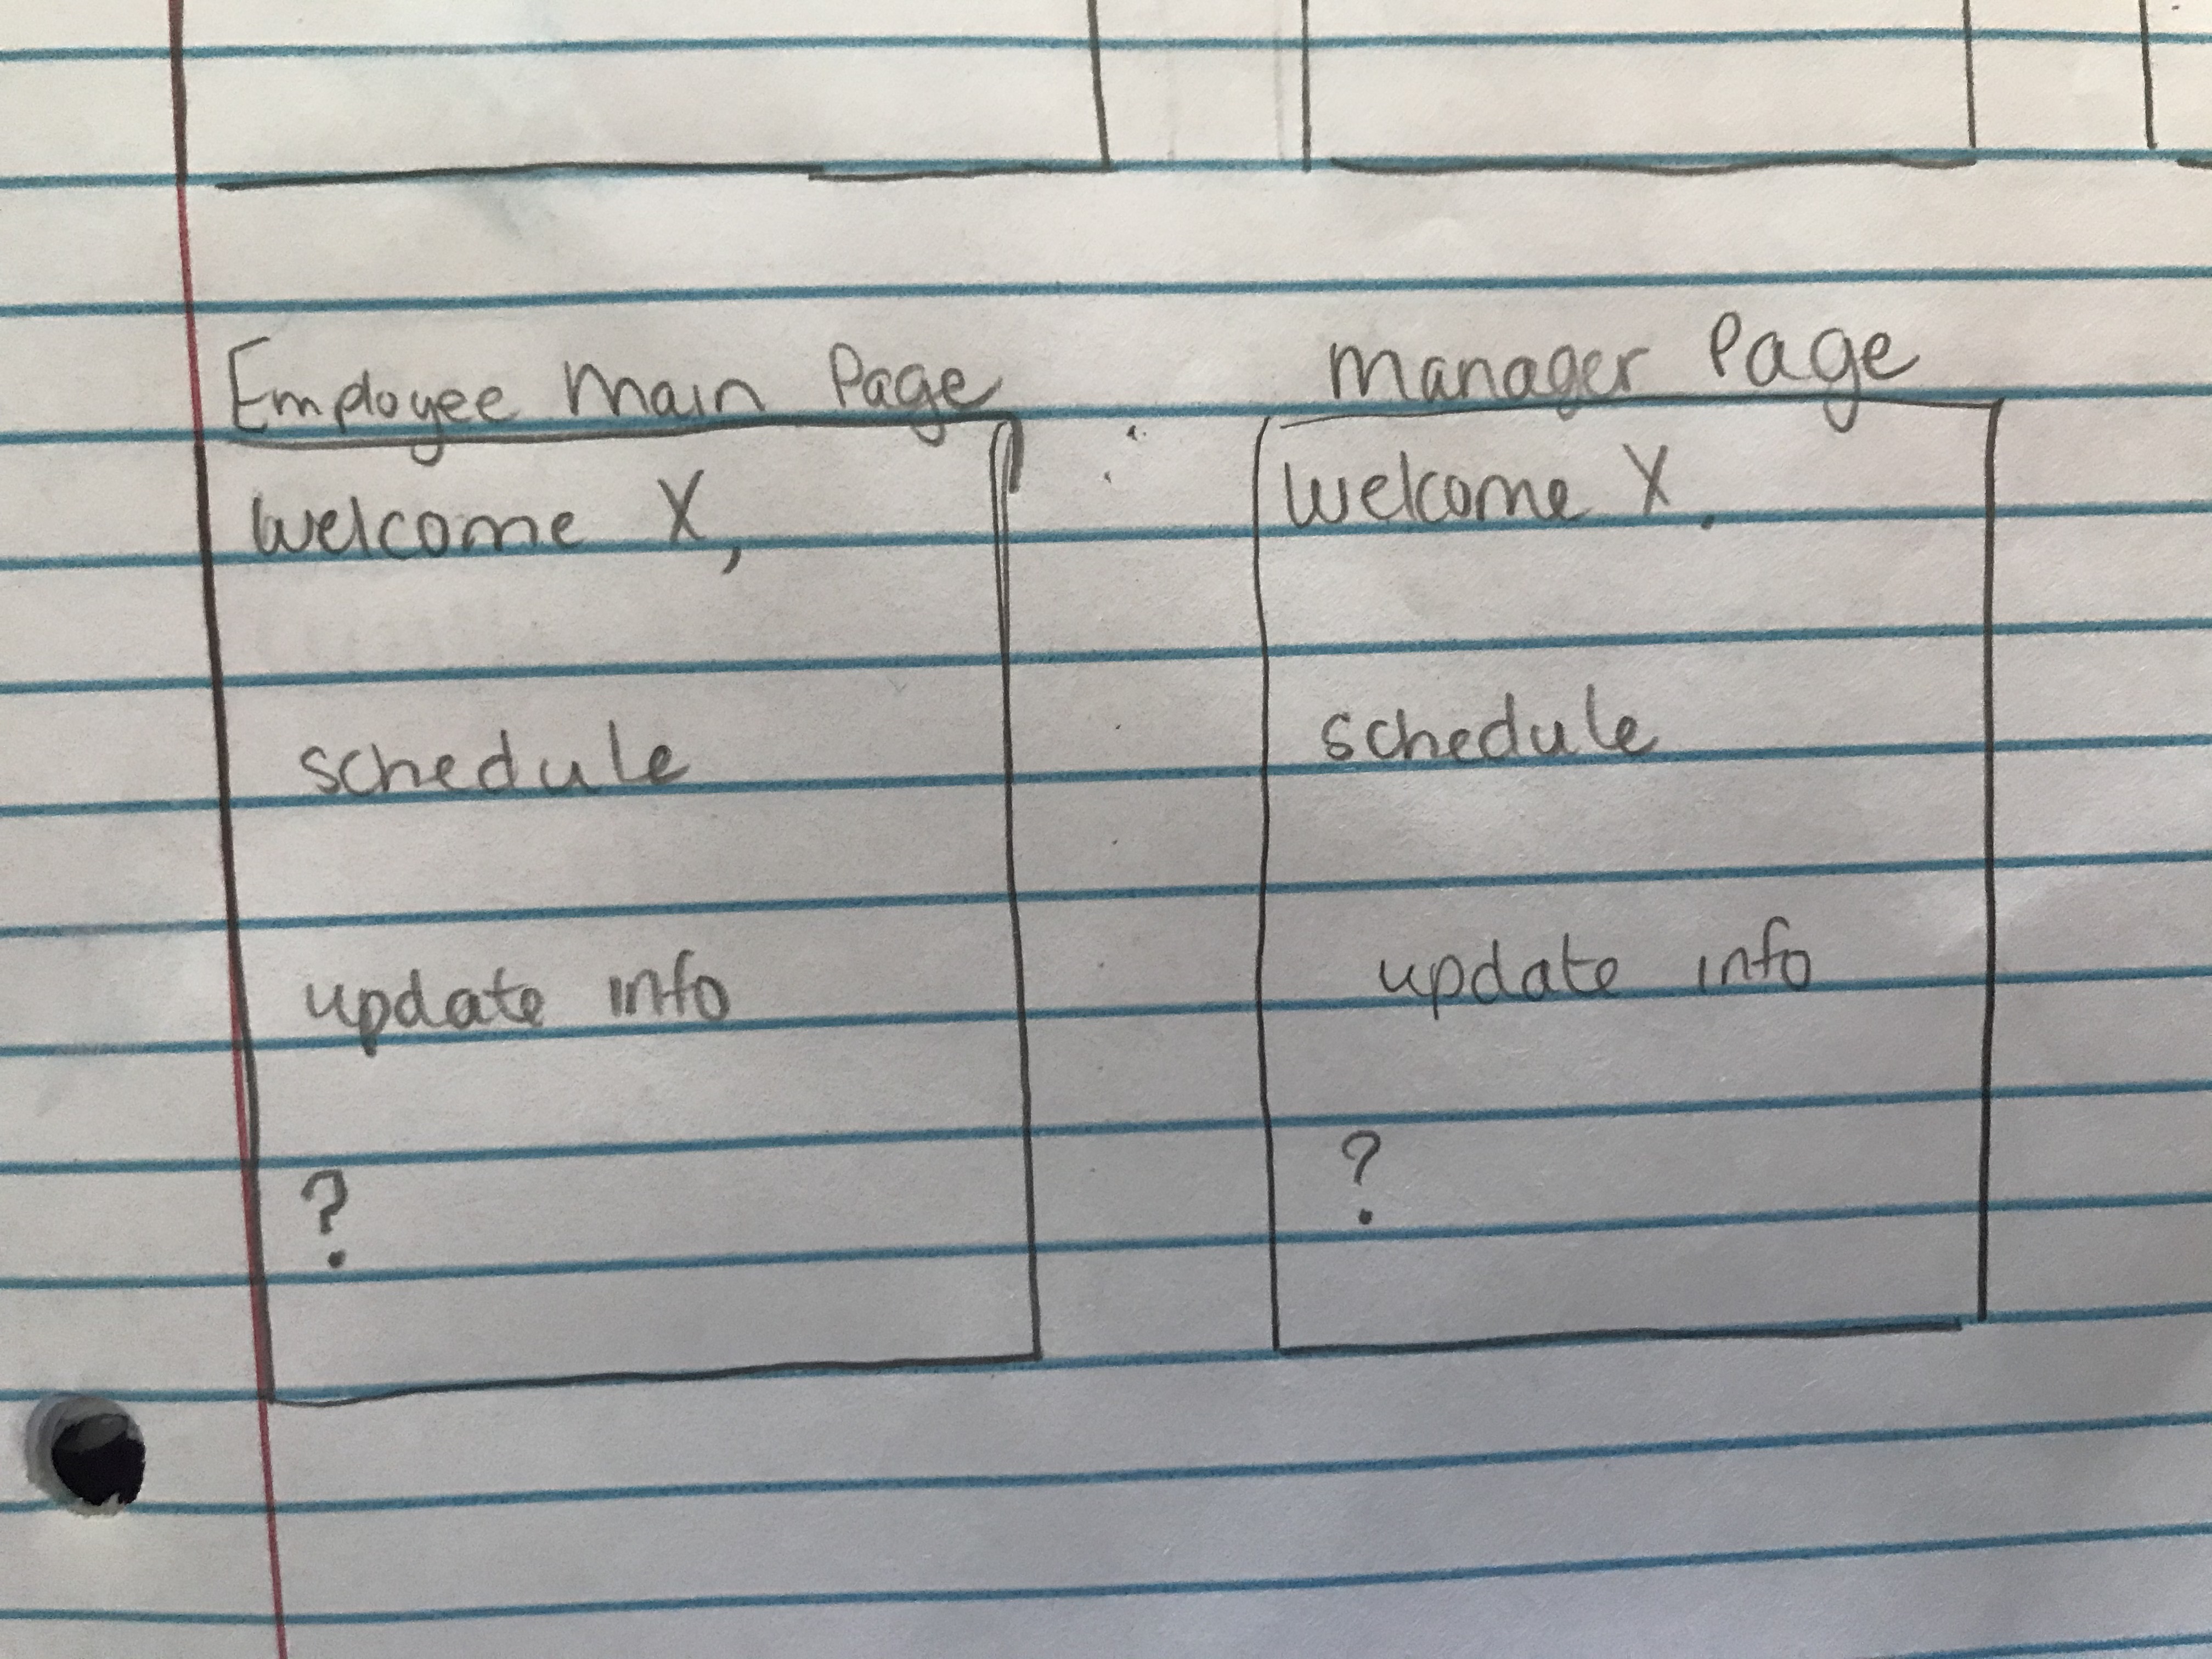 Employee Main Page
Welcome X,
schedule
update info
?
Manager Page
Welcome X.
schedule
update info
?